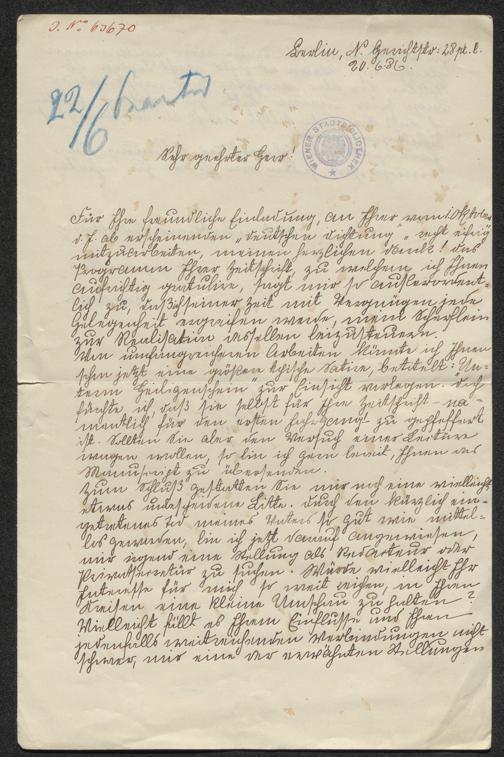 J. N. 63670
Berlin, N. Gerichtstr: 28 pt. l.
20.6.86.
22/6 beantw
WIENER STADTBIBLIOTHEK
Sehr geehrter Herr!
Für Ihre freundliche Einladung, an Ihrer vom 1 Oktober
d. J. ab erscheinenden „Deutschen Dichtung" recht eifrig
mitzuarbeiten, meinen herzlichen Dank! Das
Programm Ihrer Zeitschrift, zu welchem ich Ihnen
aufrichtig gratulire, sagt mir so außerordent-
lich zu, daß ich seiner Zeit mit Vergnügen jede
Gelegenheit ergreifen werde, mein Scherflein
zur Realisation desselben beizusteuern.
Von umfangreicheren Arbeiten könnte ich Ihnen
schon jetzt eine größere epische Satire, betitelt: Un-
term Heiligenschein" zur Einsicht vorlegen. Doch
fürchte ich daß sie selbst für Ihre Zeitschrift – na-
mentlich für den ersten Jahrgang – zu gepfeffert
ist. Sollten Sie aber den Versuch einer Lecture
wagen wollen, so bin ich gern bereit, Ihnen das
Manuscript zu übersenden.
Zum Schluß gestatten Sie mir noch eine vielleicht
etwas unbescheidene Bitte. Durch den kürzlich ein-
getretenen Tod meines Vaters so gut wie mittel-
los geworden, bin ich jetzt darauf angewiesen,
mir irgend eine Stellung als Redakteur oder
Privatsecretär zu suchen. Würde vielleicht Ihr
Interesse für mich so weit reichen, in Ihren
Kreisen eine kleine Umschau zu halten?
Vielleicht fällt es Ihrem Einflusse und Ihren
jedenfalls weitreichenden Verbindungen nicht
schwer, mir eine der erwähnten Stellungen